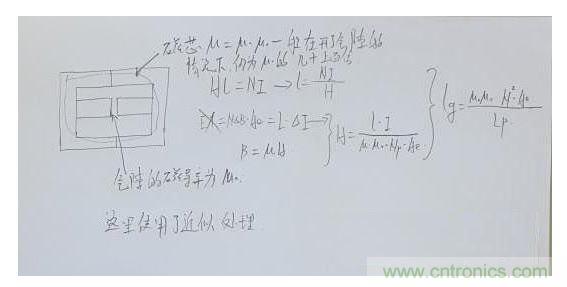 磁芯 μ = μr·μ0 一般在开了气隙的
情况下,仍为μ0的几十上百倍
Hl = NI → l = NI/H
= N·ΔB·Ae = L·ΔI →
B = μH
H = L·I/(μr·μ0·Np·Ae)
lg = μrμ0 N²·Ae/Lp
气隙的磁导率为μ0
这里使用了近似处理
www.cntronics.com